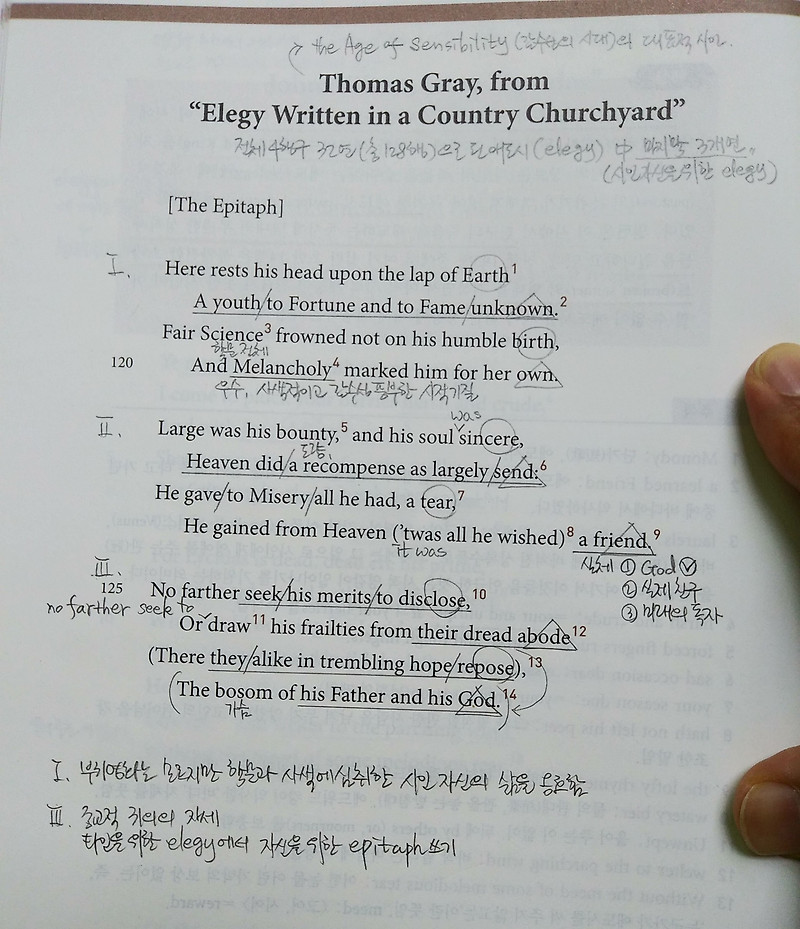 → the Age of Sensibility (감수성의 시대)의 대표적 시인.
Thomas Gray, from
“Elegy Written in a Country Churchyard”
전체 4행구 32연(총 128행)으로 된 애도시(elegy) 中 마지막 3개연.
(시인 자신을 위한 elegy)
[The Epitaph]
I. Here rests his head upon the lap of Earth1
A youth/to Fortune and to Fame/unknown.2
Fair Science3 frowned not on his humble birth,
학문 전체
120 And Melancholy4 marked him for her own.
우수, 사색적이고 감수성 풍부한 시적기질
was
II. Large was his bounty,5 and his soul sincere,
Heaven did/a recompense as largely/send:6
He gave/to Misery/all he had, a tear,7
He gained from Heaven (’twas all he wished)8 a friend.9
it was
실체 ① God ✓
② 실제 친구
③ 미래의 독자
III.
125 No farther seek/his merits/to disclose,10
no farther seek to
Or draw11 his frailties from their dread abode12
(There they/alike in trembling hope/repose),13
(The bosom of his Father and his God.14)
가슴
I. 부귀영화는 모르지만 학문과 사색에 심취한 시인 자신의 삶을 응축함
III. 종교적 귀의의 자세
타인을 위한 elegy에서 자신을 위한 epitaph쓰기